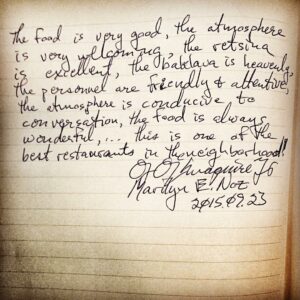 The food is very good, the atmosphere
is very wellcoming, the retsina
is excellent, the baklava is heavenly,
the personnel are friendly & attentive,
the atmosphere is conducive to
conversation, the food is always
wonderful,... this is one of the
best restaurants in the neighborhood!
Marilyn E. Noz
2015.09.23